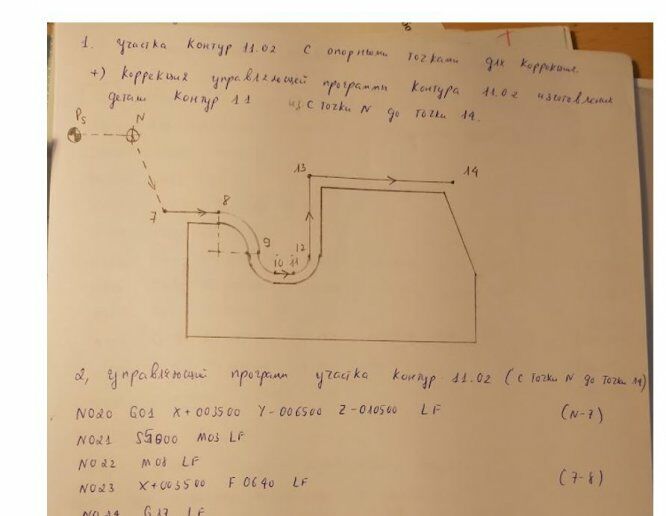 1. участка контур 11.02 с опорными точками для коррекции.
+) коррекция управляющей программы контура 11.02 изготовления
детали контур 11 из с точки N до точки 14.
Ps N
13 14
7 8
9 10 11 12
2, управляющий програми участка контур 11.02 (с точки N до точки 14)
N020 G01 X+003500 Y-006500 Z-010500 LF (N-7)
N021 S5000 M03 LF
N022 M08 LF
N023 X+003500 F0640 LF (7-8)
G17 LF